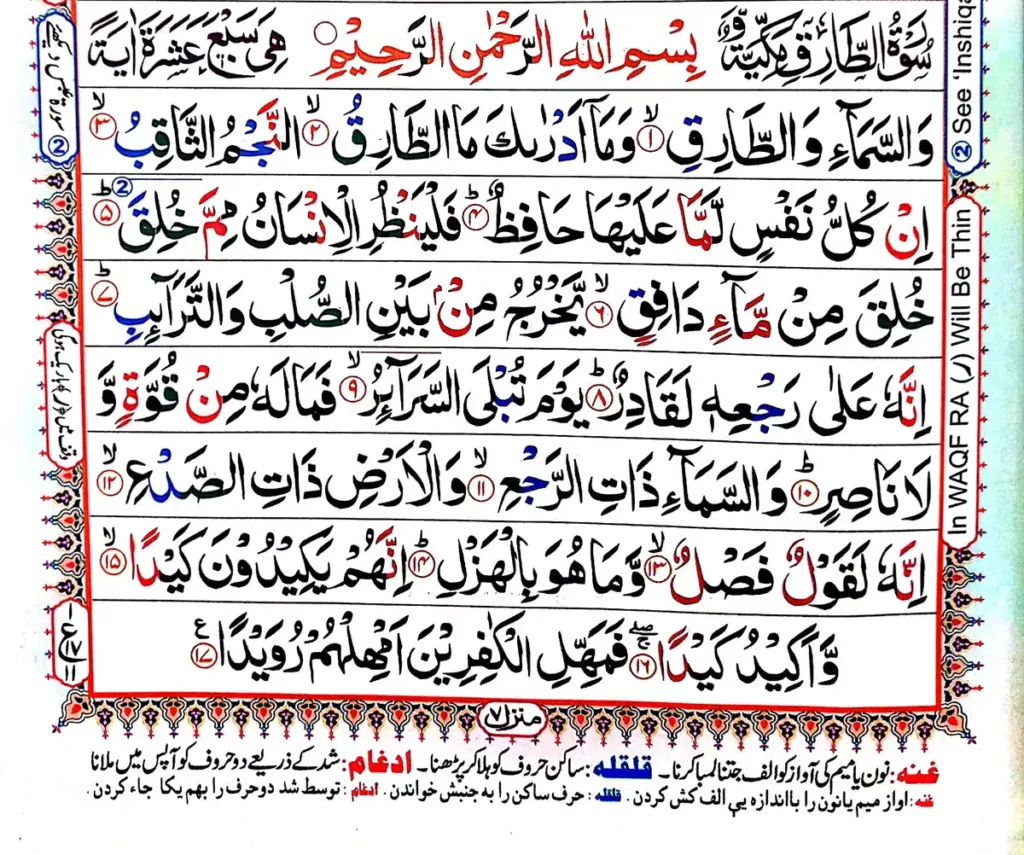 سُوْرَةُ الطَّارِقِ مَكِّيَّةٌ وَّ بِسْمِ اللّٰهِ الرَّحْمٰنِ الرَّحِيْمِ هِيَ سَبْعَ عَشَرَةَ اٰيَةً
وَالسَّمَآءِ وَالطَّارِقِ ۙ﴿۱﴾ وَمَاۤ اَدْرٰىكَ مَا الطَّارِقُ ۙ﴿۲﴾ النَّجْمُ الثَّاقِبُ ۙ﴿۳﴾
اِنْ كُلُّ نَفْسٍ لَّمَّا عَلَيْهَا حَافِظٌ ؕ﴿۴﴾ فَلْيَنْظُرِ الْاِنْسَانُ مِمَّ خُلِقَ ؕ﴿۵﴾
خُلِقَ مِنْ مَّآءٍ دَافِقٍ ۙ﴿۶﴾ يَّخْرُجُ مِنْۢ بَيْنِ الصُّلْبِ وَالتَّرَآئِبِ ؕ﴿۷﴾
اِنَّهٗ عَلٰى رَجْعِهٖ لَقَادِرٌ ؕ﴿۸﴾ يَوْمَ تُبْلَى السَّرَآئِرُ ۙ﴿۹﴾ فَمَا لَهٗ مِنْ قُوَّةٍ وَّ
لَا نَاصِرٍ ؕ﴿۱۰﴾ وَالسَّمَآءِ ذَاتِ الرَّجْعِ ۙ﴿۱۱﴾ وَالْاَرْضِ ذَاتِ الصَّدْعِ ۙ﴿۱۲﴾
اِنَّهٗ لَقَوْلٌ فَصْلٌ ۙ﴿۱۳﴾ وَّمَا هُوَ بِالْهَزْلِ ؕ﴿۱۴﴾ اِنَّهُمْ يَكِيْدُوْنَ كَيْدًا ۙ﴿۱۵﴾
وَّاَكِيْدُ كَيْدًا ۖۚ﴿۱۶﴾ فَمَهِّلِ الْكٰفِرِيْنَ اَمْهِلْهُمْ رُوَيْدًا ﴿۱۷﴾ ع
منزل ۷
غنه: نون یا میم کی آواز کو الف جتنا لمبا کرنا۔ قلقله: ساکن حروف کو ہلا کر پڑھنا۔ ادغام: شد کے ذریعے دو حروف کو آپس میں ملانا
غنه: اواز میم یا نون را با اندازه یی الف کش کردن. قلقله: حرف ساکن را به جنبش خواندن. ادغام: توسط شد دو حرف را بهم یکجا جاء کردن.
② See 'Inshiqa
In WAQF RA (ر) Will Be Thin